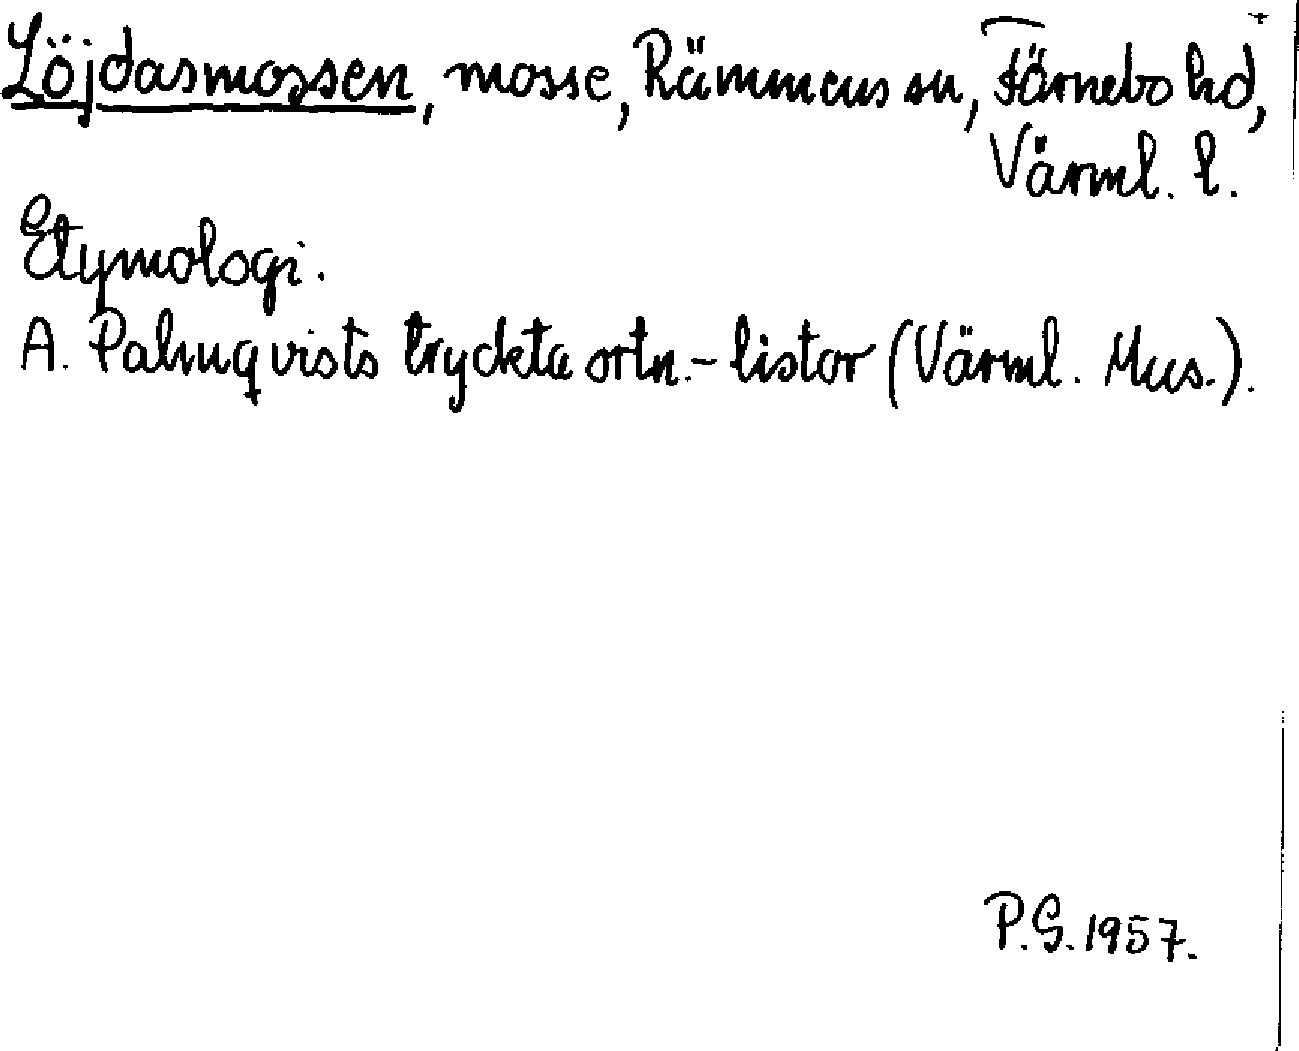 Löjdasmossen, mosse, Rämmens sn, Färnebo hd,
Värml. l.
Etymologi.
A. Palmqvists tryckta ortn.-listor (Värml. Mus.).
P.G. 1957.